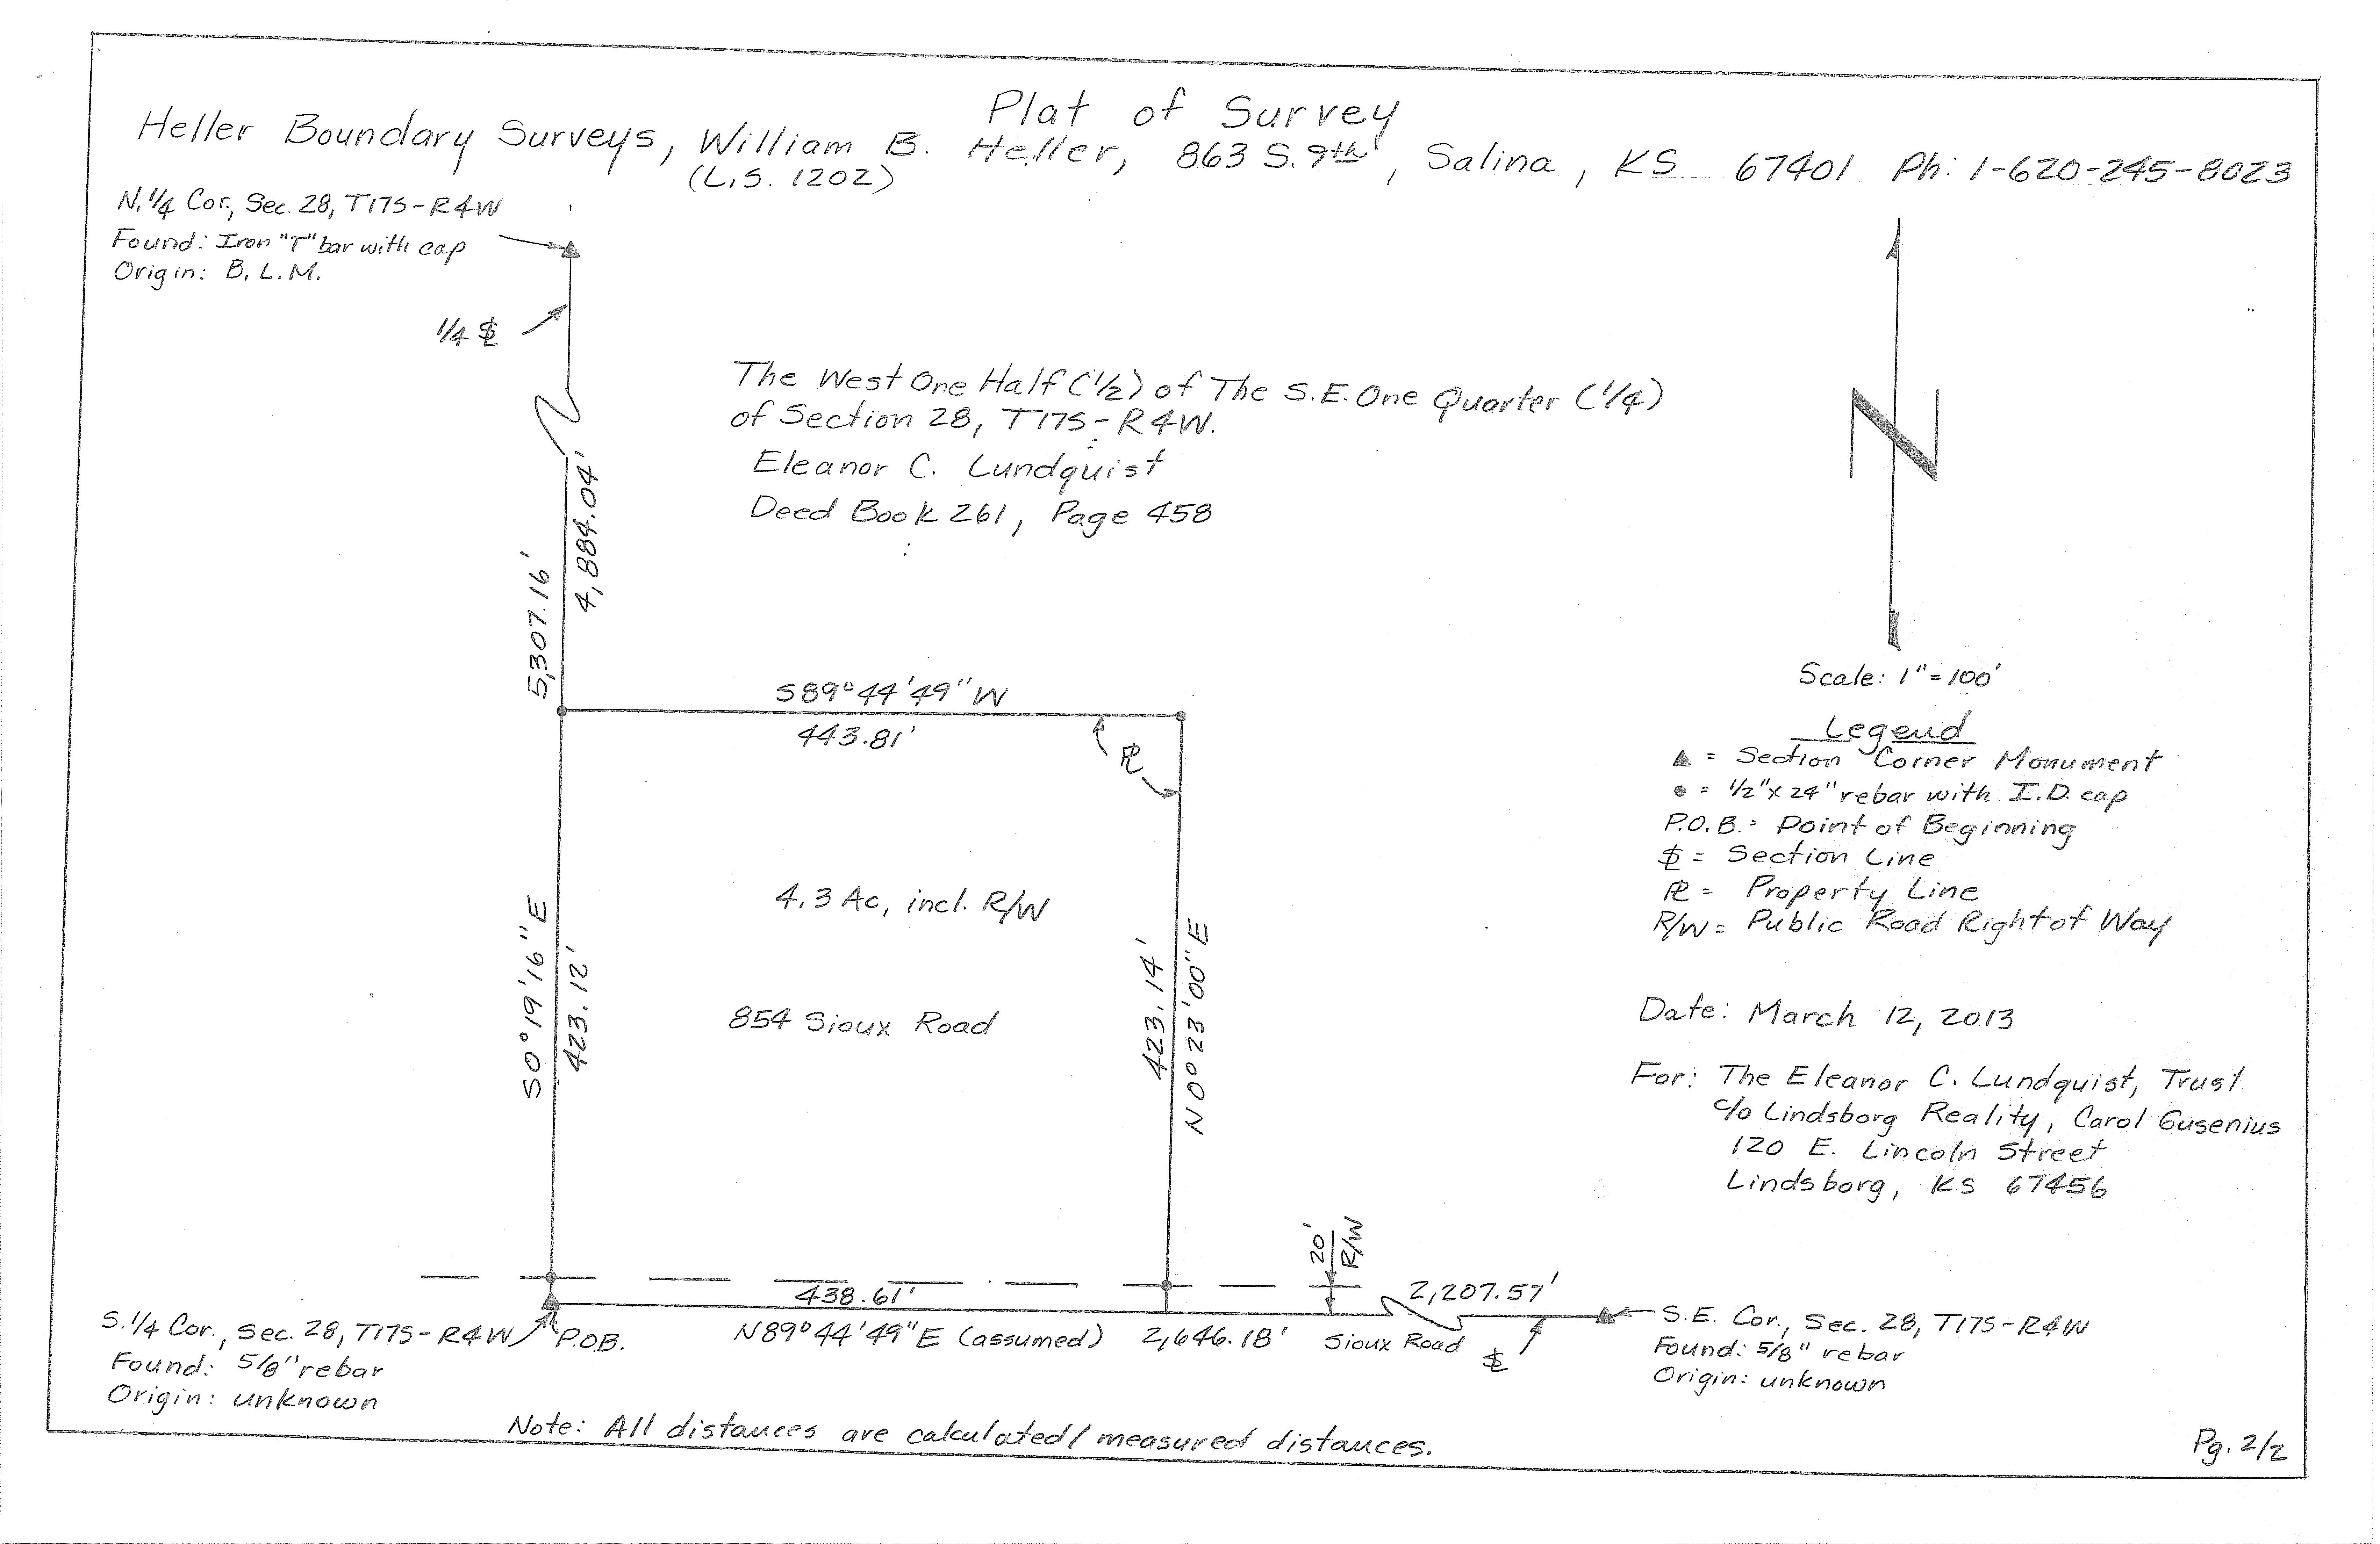 Plat of Survey
Heller Boundary Surveys, William B. Heller, 863 S. 9th, Salina, KS 67401 Ph: 1-620-245-8023
(L.S. 1202)
N. 1/4 Cor., Sec. 28, T17S-R4W
Found: Iron "T" bar with cap
Origin: B.L.M.
1/4 SL
The West One Half (1/2) of The S.E. One Quarter (1/4)
of Section 28, T17S-R4W.
Eleanor C. Lundquist
Deed Book 261, Page 458
N
5,307.16'
4,884.04'
S89°44'49"W
443.81'
PL
Scale: 1"=100'
Legend
▲ = Section Corner Monument
● = 1/2"x 24" rebar with I.D. cap
P.O.B. = Point of Beginning
SL = Section Line
PL = Property Line
R/W = Public Road Right of Way
4.3 Ac, incl. R/W
854 Sioux Road
S0°19'16"E
423.12'
423.14'
N0°23'00"E
Date: March 12, 2013
For: The Eleanor C. Lundquist, Trust
c/o Lindsborg Reality, Carol Gusenius
120 E. Lincoln Street
Lindsborg, KS 67456
20'
R/W
438.61'
2,207.57'
S. 1/4 Cor., Sec. 28, T17S-R4W
Found: 5/8" rebar
Origin: unknown
P.O.B.
N89°44'49"E (assumed) 2,646.18' Sioux Road
SL
S.E. Cor., Sec. 28, T17S-R4W
Found: 5/8" rebar
Origin: unknown
Note: All distances are calculated/measured distances.
Pg. 2/2